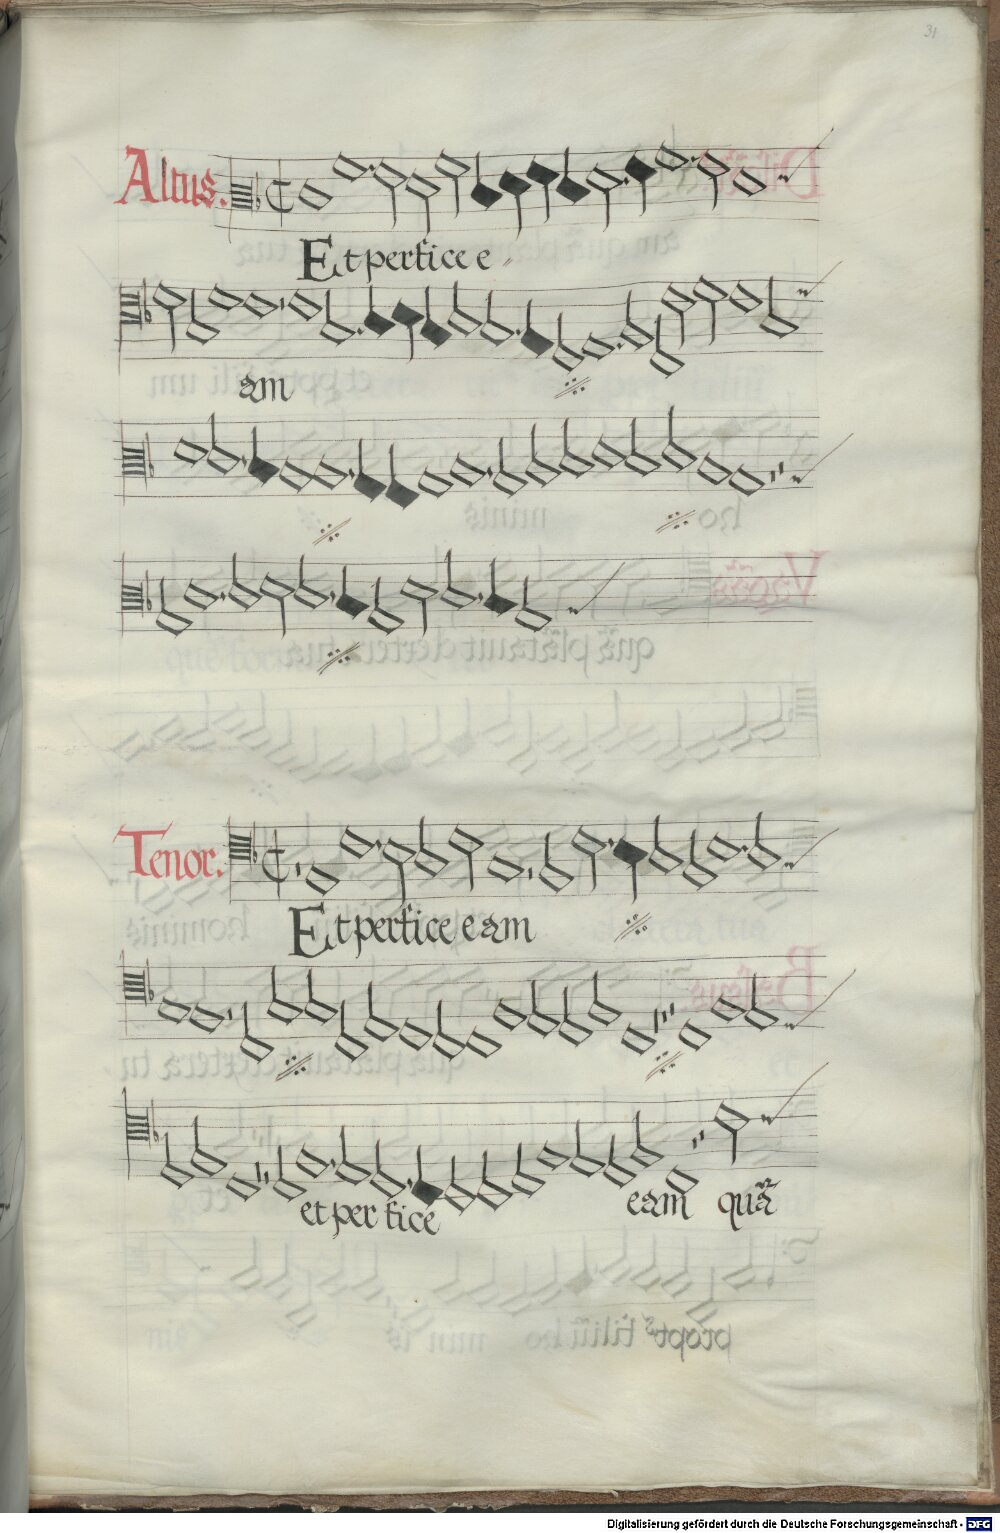 31
Altus.
Et perfice e
am
Tenor.
Et perfice eam
et perfice eam quã
Digitalisierung gefördert durch die Deutsche Forschungsgemeinschaft - DFG